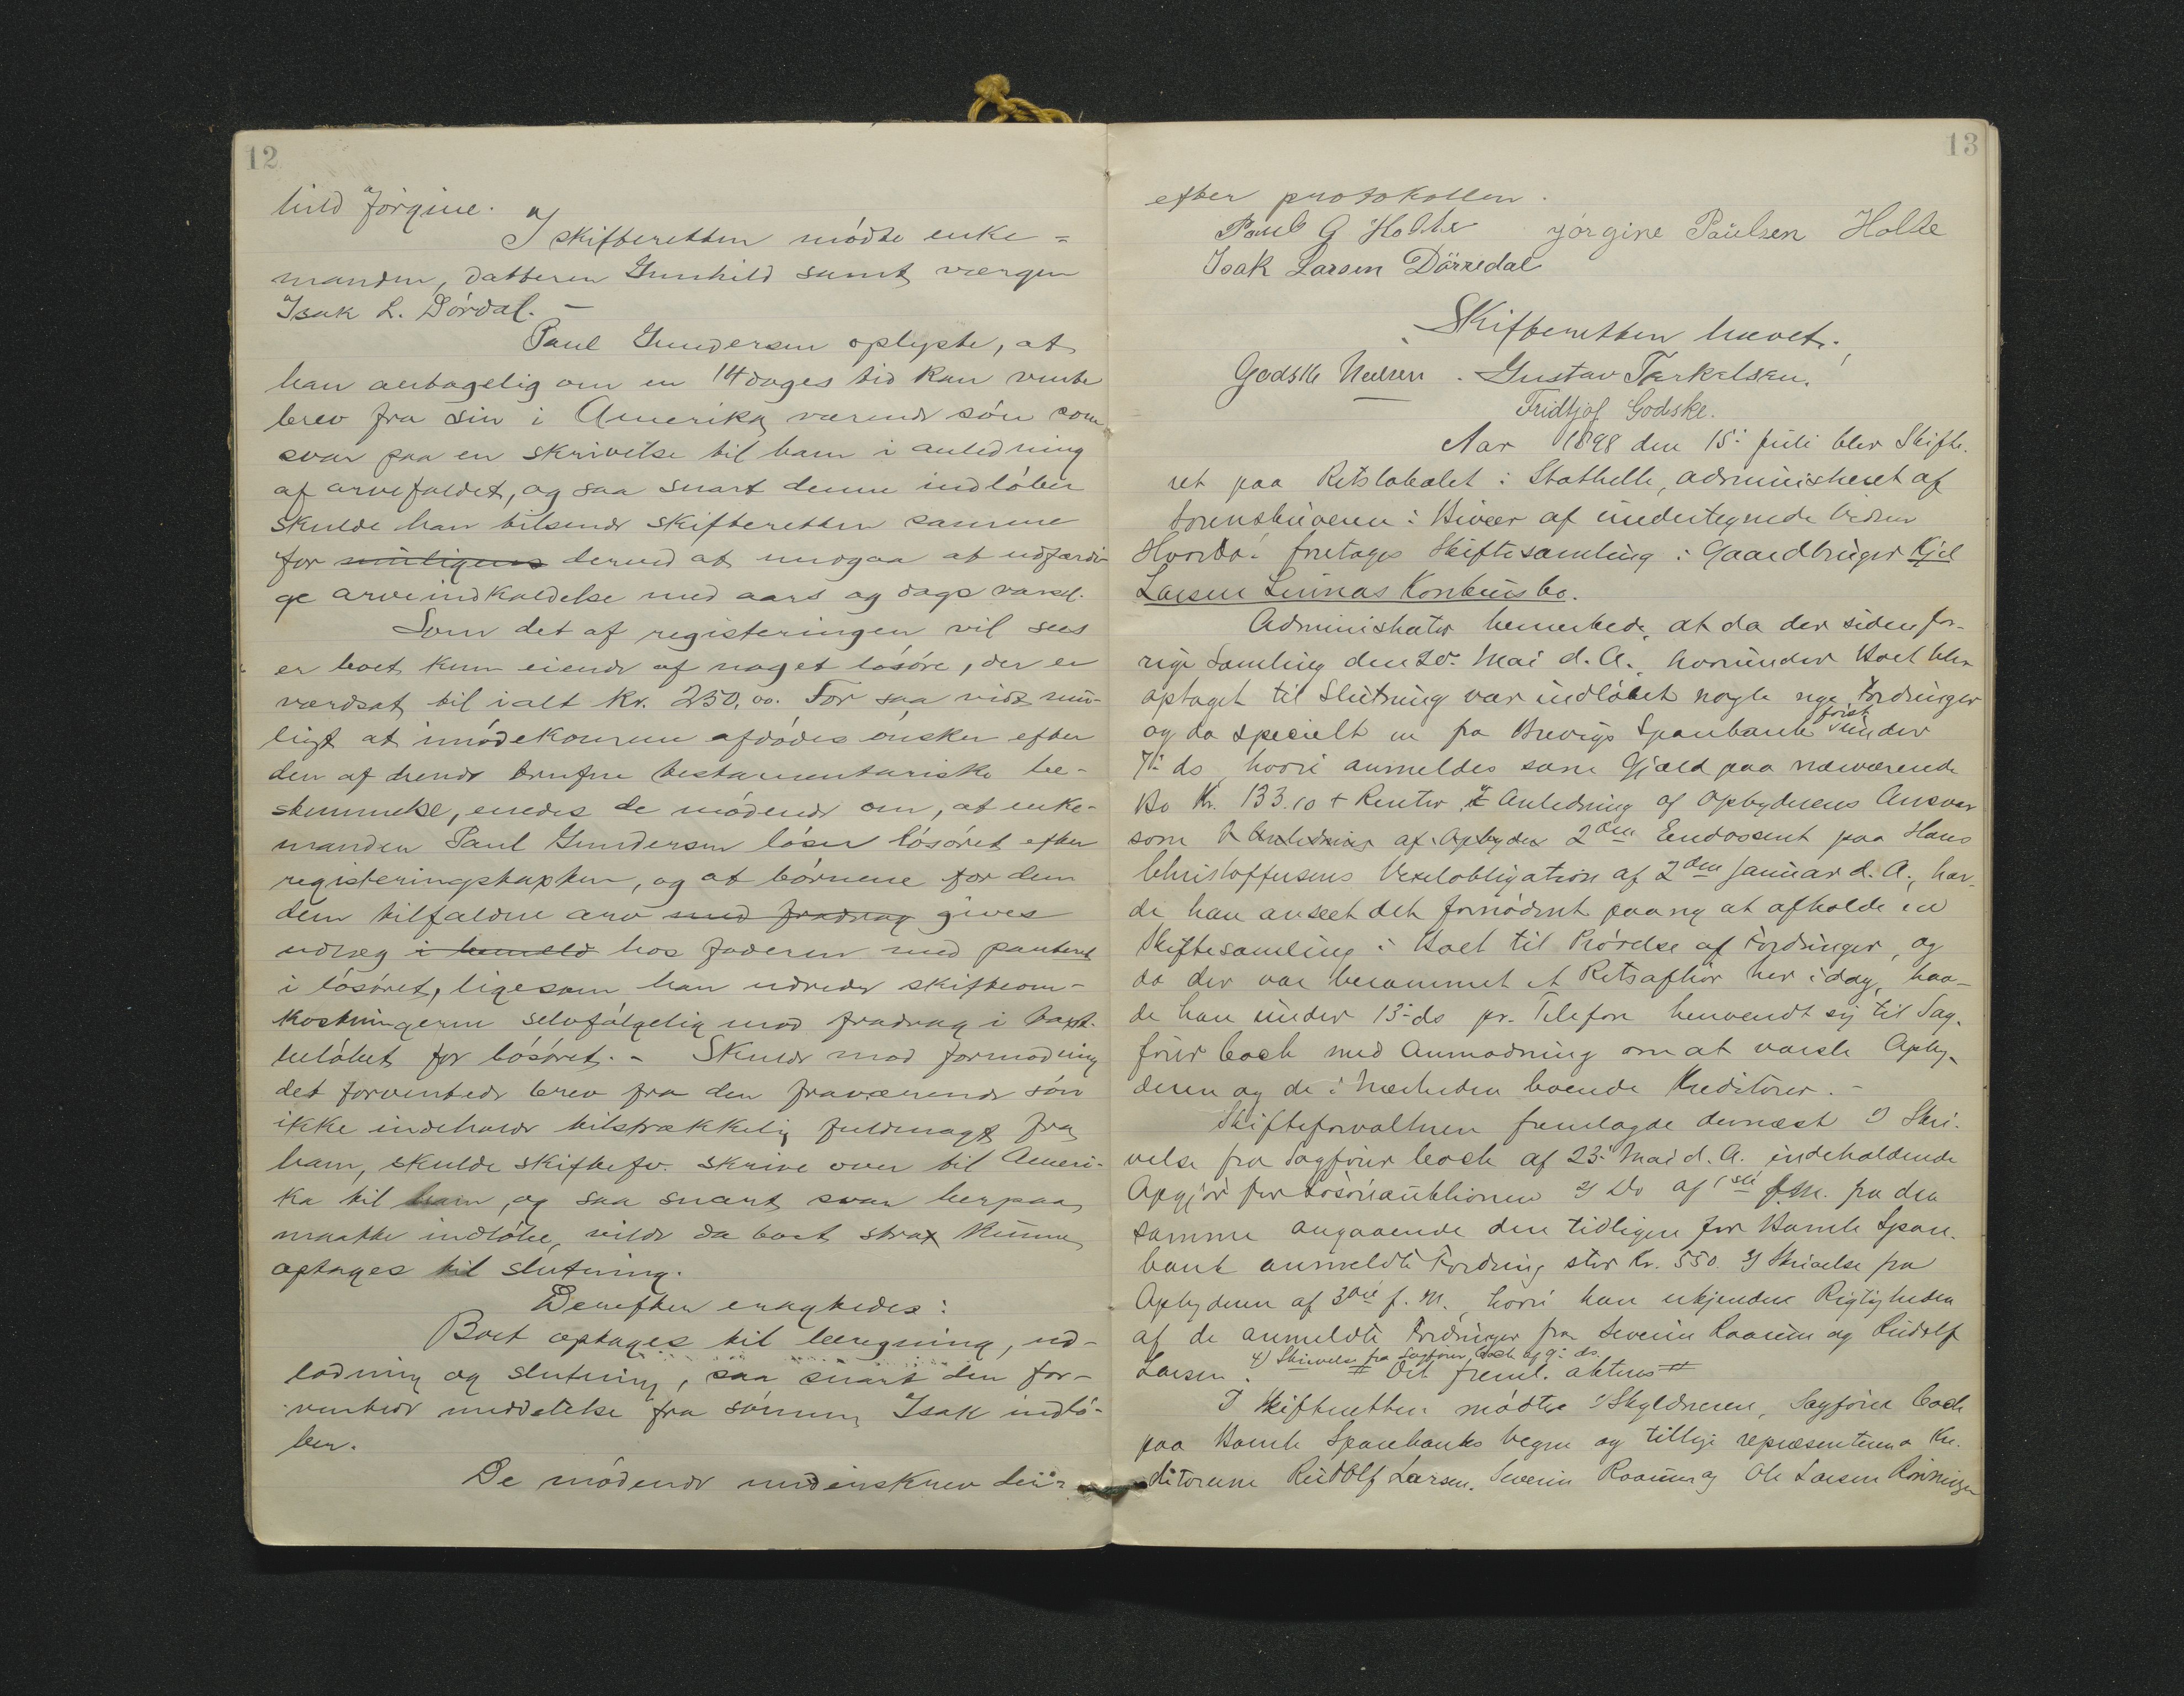 12
hild Jørgine.
I skifteretten mødte enke=
manden, datteren Gunhild samt værgen
Isak L. Dørdal. –
Paul Gundersen oplyste, at
han antagelig om en 14 dages tid kan vente
brev fra sin i Amerika værende søn som
svar paa en skrivelse til ham i anledning
af arvefaldet, og saa snart denne indløber
skulde han tilsende skifteretten samme
for muligens derved at undgaa at udfærdi-
ge arveindkaldelse med aars og dags varsel.
Som det af registeringen vil sees
er boet kun eiende af noget løsøre, der er
værdsat til ialt kr. 250,00. For saa vidt mu-
ligt at imødekomme afdødes ønsker efter
den af hende trufne testamentariske be-
stemmelse, enedes de mødende om, at enke-
manden Paul Gundersen løser løsøret efter
registeringstaksten, og at børnene for den
dem tilfaldne arv med fradrag gives
udlæg i hos faderen med panteret
i løsøret, ligesom han udreder skifteom-
kostningerne selvfølgelig mod fradrag i takst-
beløbet for løsøret. – Skulde mod formodning
det forventede brev fra den fraværende søn
ikke indeholde tilstrækkelig fuldmagt fra
ham, skulde skiftefv. skrive over til Ameri-
ka til ham, og saa snart svar herpaa
maatte indløbe, vilde da boet strax kunne
optages til slutning.
Derefter enaghedes:
Boet optages til beregning, ud-
lodning og slutning, saa snart den for-
ventede meddelelse fra sønnen Isak indlø-
ber.
De mødende underskrev
13
efter protokollen.
Paul G Holte Jørgine Paulsen Holte
Isak Larsen Dörredal
Skifteretten hævet.
Godske Nielsen. Gustav Terkelsen.
Fridtjof Godske.
Aar 1898 den 15: Juli blev Skifte-
ret paa Retslokalet i Stathelle, administreret af
Sorenskriveren i Overvær af undertegnede Vidner
Hvorda: foretoges Skiftesamling i Gaardbruger Kjel
Larsen Linnas Konkursbo.
Administrator bemerkede, at da der siden for-
rige Samling den 20: Mai d. A., hvorunder Boet blev
optaget til Slutning var indløbet nogle nye Fordringer
og da specielt en fra Brevigs Sparebank først under
7: ds, hvori anmeldes som Gjæld paa nærværende
Bo Kr. 133.10 + Renter i Anledning af Opbyderens Ansvar
som i Anledning af Opbyder 2den Endossent paa Hans
Christoffersens Vexelobligation af 2den Januar d. A., hav-
de han anseet det fornødent paany at afholde en
Skiftesamling i Boet til Prøvelse af Fordringer, og
da der var berammet et Retsafhør her idag, hav-
de han under 13: ds pr. Telefon henvendt sig til Sag-
fører Coch med Anmodning om at varsle Opby-
deren og de i Nærheden boende Kreditorer. –
Skifteforvalteren fremlagde dernæst 1) Skri-
velse fra Sagfører Coch af 23: Mai d. A. indeholdende
Opgjør for Løsøreauktionen 2) Do af 1ste f. M. fra den
samme angaaende den tidligere for Bamle Spare-
bank anmeldte Fordring stor Kr. 550 3) Skrivelse fra
Opbyderen af 3die f. M., hvori han erkjender Rigtigheden
af de anmeldte Fordringer fra Severin Raanum og Rudolf
Larsen. 4) Skrivelse fra Sagfører Coch af 9: ds.
Det freml. akteres
I Skifteretten mødte 1) Skyldneren, Sagfører Coch
paa Bamle Sparebanks Vegne og tillige repræsenterende Kre-
ditorerne Rudolf Larsen, Severin Raanum og Ole Larsen Rønningen